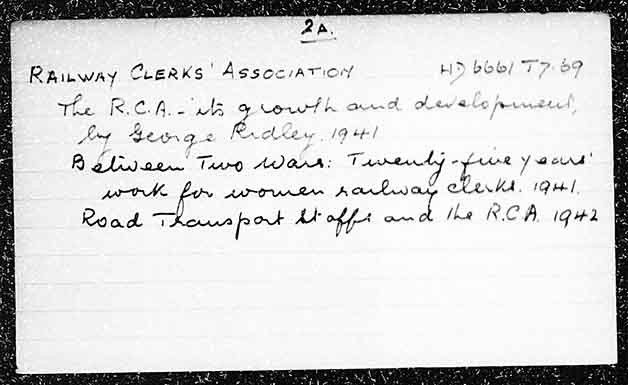 2A.
RAILWAY CLERKS' ASSOCIATION HD 6661 T7.69
The R.C.A. - its growth and development,
by George Ridley. 1941
Between Two Wars: Twenty-five years'
work for women railway clerks. 1941.
Road Transport Staffs and the R.C.A. 1942